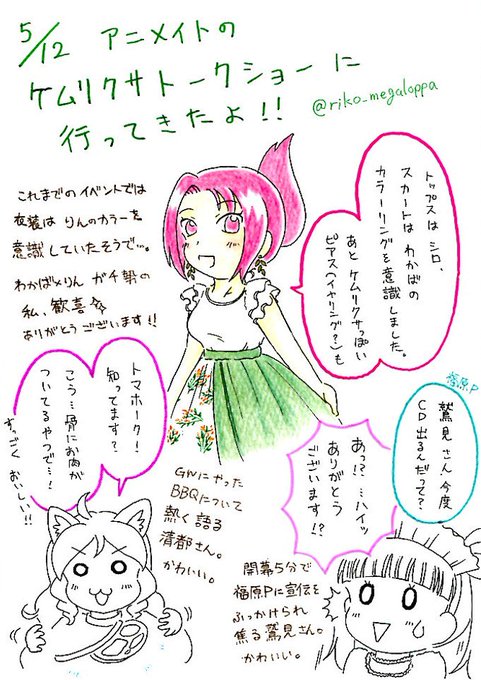 5/12 アニメイトの
ケムリクサトークショーに
行ってきたよ!!
@riko_megaloppa
これまでのイベントでは
衣装は りんのカラーを
意識していたそうで…。
わかば×りん ガチ勢の
私、歓喜
ありがとうございます!!
トップスは シロ、
スカートは わかばの
カラーリングを意識しました。
あと ケムリクサっぽい
ピアス(イヤリング?)も
福原P
鷲見さん 今度
CD出るんだって?
あっ!?…ハイッ
ありがとう
ございます!?
トマホーク!
知ってます?
こう…骨にお肉が
ついてるやつで…!
すっごく おいしい!!
GWにやった
BBQについて
熱く語る
清都さん。
かわいい。
開幕5分で
福原Pに宣伝を
ぶっかけられ
焦る鷲見さん。
かわいい。